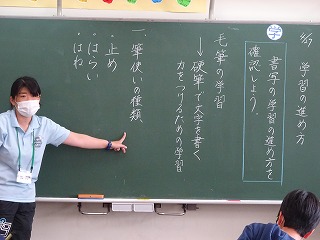 4/27 学習の進め方
学
書写の学習の進め方を
確認しよう。
毛筆の学習
→硬筆で文字を書く
力をつけるための学習
一、筆使いの種類
・止め
・はらい
・はね